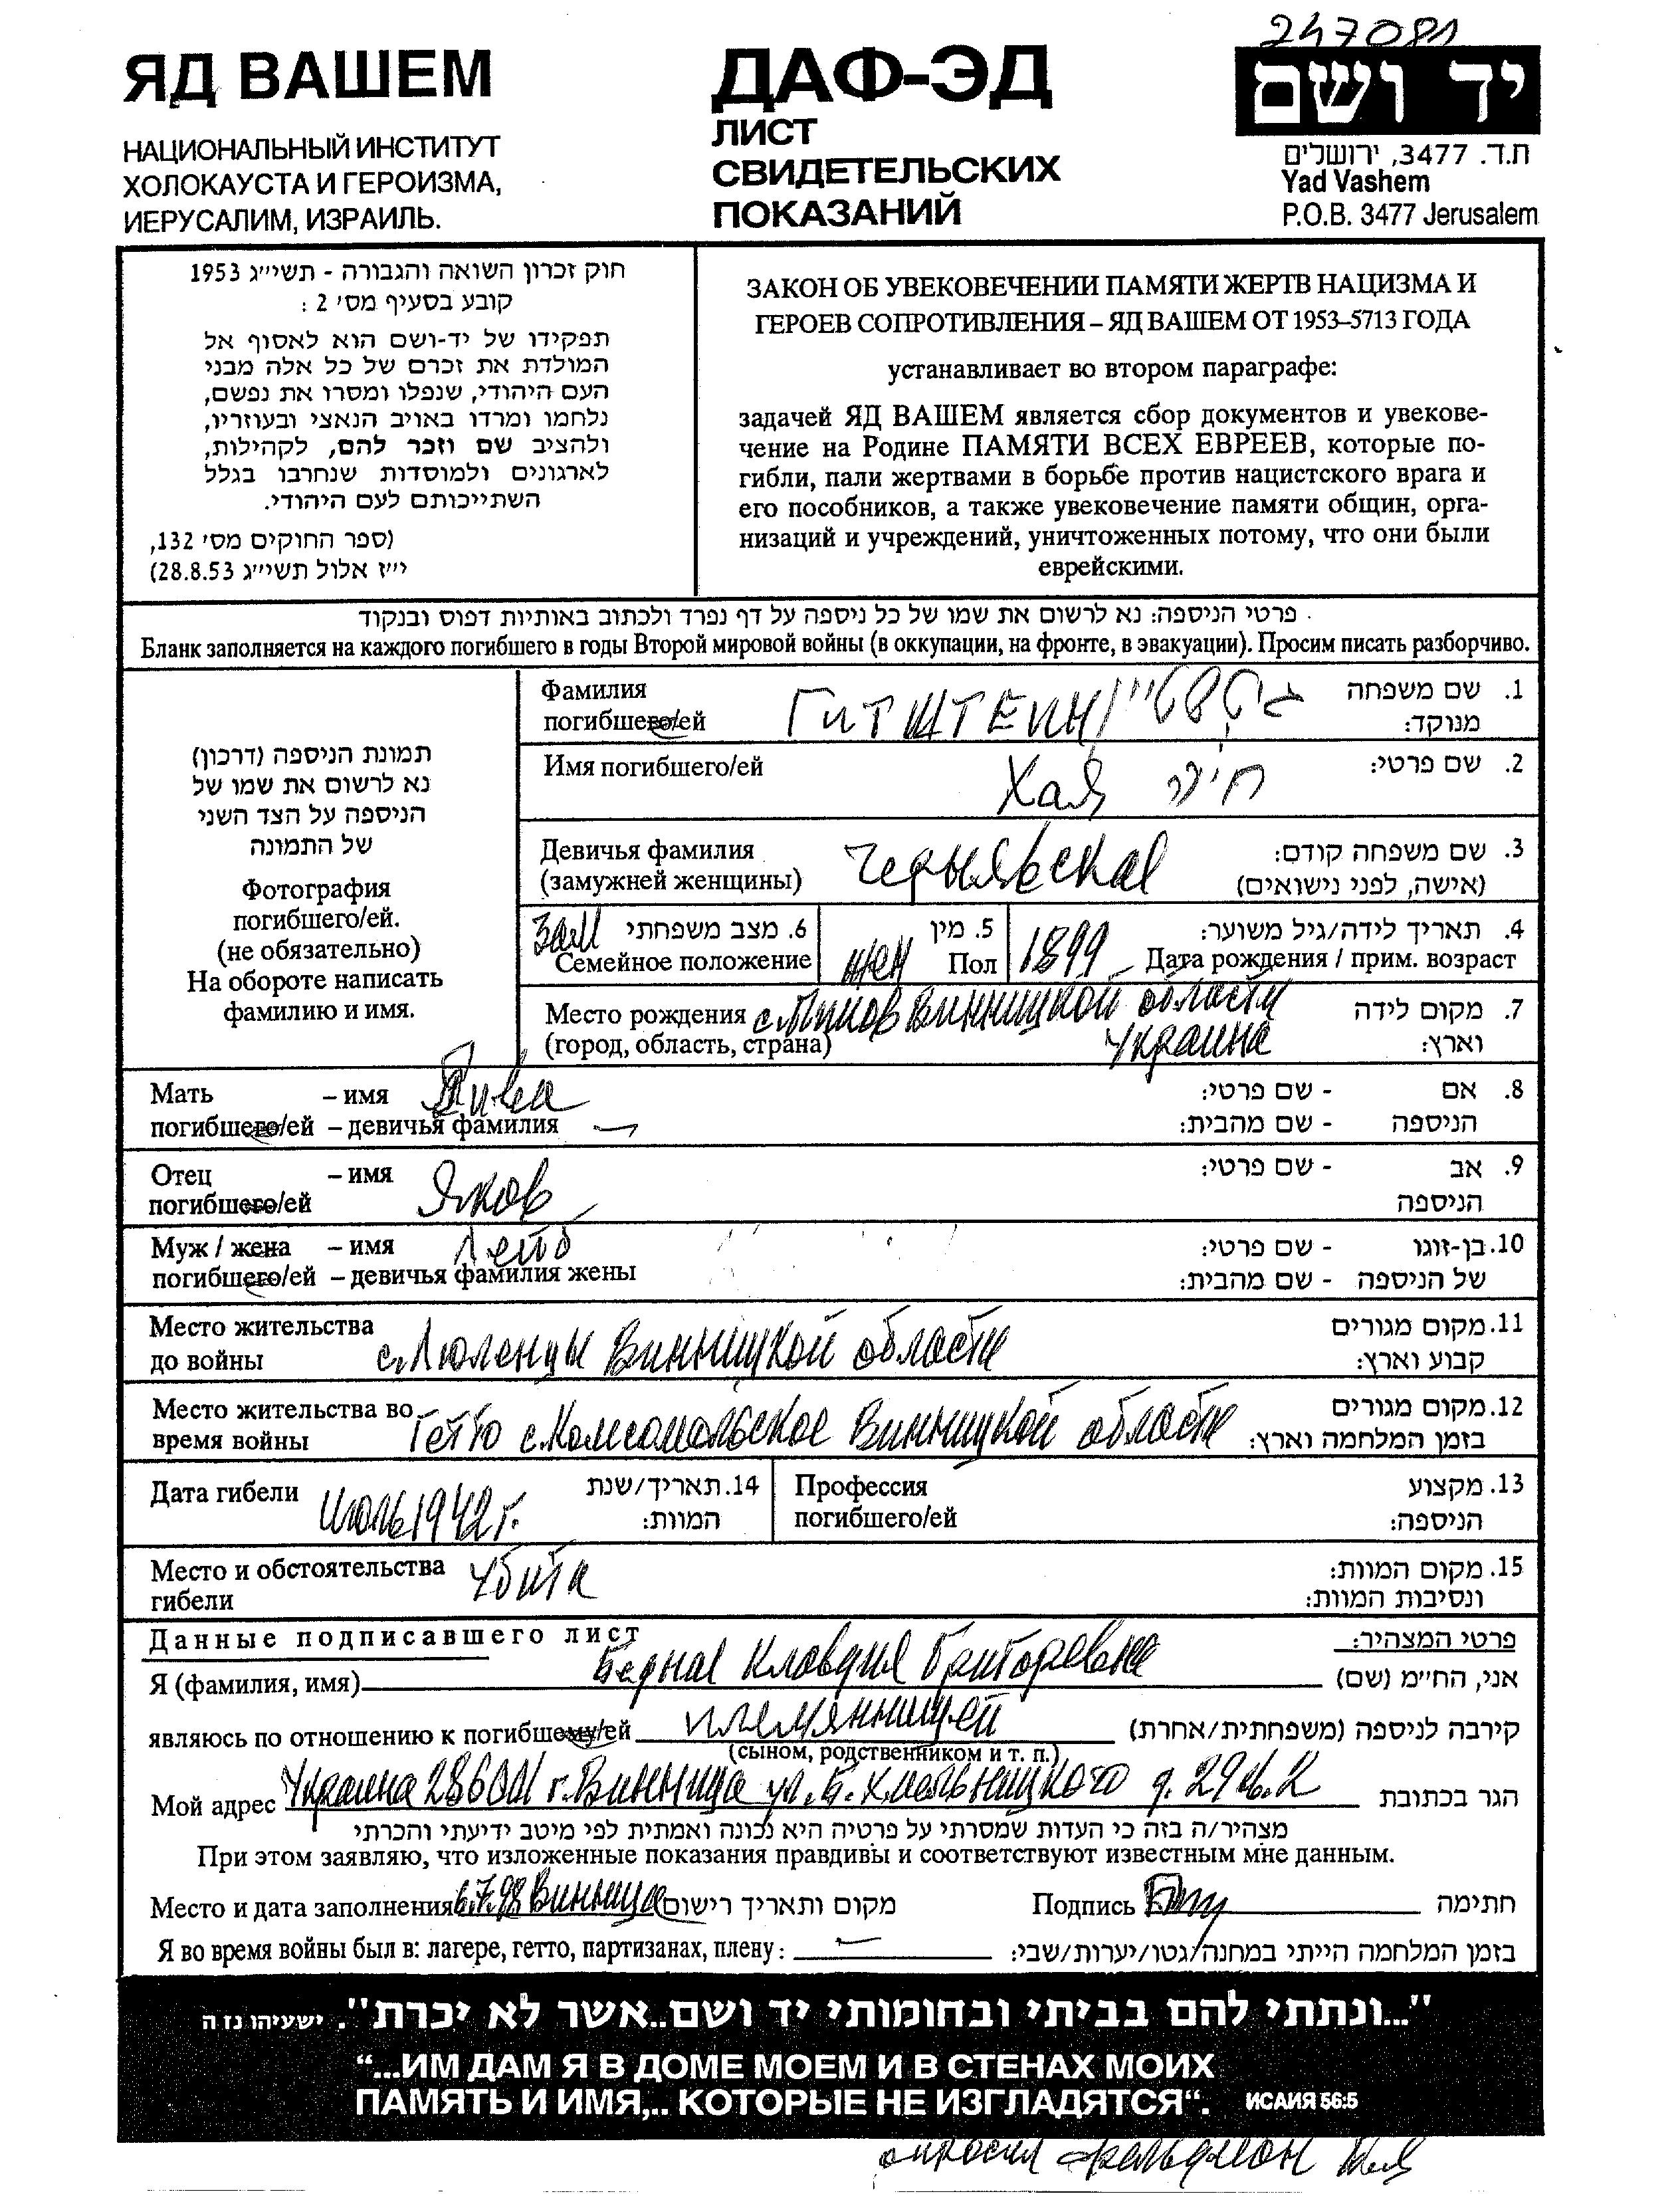 247081
ЯД ВАШЕМ
НАЦИОНАЛЬНЫЙ ИНСТИТУТ
ХОЛОКАУСТА И ГЕРОИЗМА,
ИЕРУСАЛИМ, ИЗРАИЛЬ.
ДАФ-ЭД
ЛИСТ
СВИДЕТЕЛЬСКИХ
ПОКАЗАНИЙ
יד ושם
ת.ד. 3477, ירושלים
Yad Vashem
P.O.B. 3477 Jerusalem
חוק זכרון השואה והגבורה - תשי״ג 1953
קובע בסעיף מס׳ 2 :
תפקידו של יד-ושם הוא לאסוף אל
המולדת את זכרם של כל אלה מבני
העם היהודי, שנפלו ומסרו את נפשם,
נלחמו ומרדו באויב הנאצי ובעוזריו,
ולהציב שם וזכר להם, לקהילות,
לארגונים ולמוסדות שנחרבו בגלל
השתייכותם לעם היהודי.
(ספר החוקים מס׳ 132,
י״ז אלול תשי״ג 28.8.53)
ЗАКОН ОБ УВЕКОВЕЧЕНИИ ПАМЯТИ ЖЕРТВ НАЦИЗМА И
ГЕРОЕВ СОПРОТИВЛЕНИЯ – ЯД ВАШЕМ ОТ 1953–5713 ГОДА
устанавливает во втором параграфе:
задачей ЯД ВАШЕМ является сбор документов и увекове-
чение на Родине ПАМЯТИ ВСЕХ ЕВРЕЕВ, которые по-
гибли, пали жертвами в борьбе против нацистского врага и
его пособников, а также увековечение памяти общин, орга-
низаций и учреждений, уничтоженных потому, что они были
еврейскими.
פרטי הניספה: נא לרשום את שמו של כל ניספה על דף נפרד ולכתוב באותיות דפוס ובנקוד
Бланк заполняется на каждого погибшего в годы Второй мировой войны (в оккупации, на фронте, в эвакуации). Просим писать разборчиво.
תמונת הניספה (דרכון)
נא לרשום את שמו של
הניספה על הצד השני
של התמונה
Фотография
погибшего/ей.
(не обязательно)
На обороте написать
фамилию и имя.
Фамилия ГИТШТЕЙН 1. שם משפחה
погибшего/ей מנוקד:
Имя погибшего/ей Хая חיה 2. שם פרטי:
Девичья фамилия Чернявская 3. שם משפחה קודם:
(замужней женщины) (אישה, לפני נישואים)
зам 6. מצב משפחתי 5. מין 4. תאריך לידה/גיל משוער:
Семейное положение жен Пол 1899 Дата рождения / прим. возраст
Место рождения Винницкой области 7. מקום לידה
(город, область, страна) Украина וארץ:
Мать – имя 8. אם - שם פרטי:
погибшего/ей – девичья фамилия — הניספה - שם מהבית:
Отец – имя Яков 9. אב - שם פרטי:
погибшего/ей הניספה
Муж / жена – имя Лейб 10. בן-זוגו - שם פרטי:
погибшего/ей – девичья фамилия жены של הניספה - שם מהבית:
Место жительства с. Люленцы Винницкой области 11. מקום מגורים
до войны קבוע וארץ:
Место жительства во Гетто с. Комсомольское Винницкой области 12. מקום מגורים
время войны בזמן המלחמה וארץ:
Дата гибели Июль 1942 г. 14. תאריך/שנת Профессия 13. מקצוע
המוות: погибшего/ей הניספה:
Место и обстоятельства убита 15. מקום המוות:
гибели ונסיבות המוות:
Данные подписавшего лист פרטי המצהיר:
Я (фамилия, имя) Бедная Клавдия Григоревна אני, החי״מ (שם)
являюсь по отношению к погибшему/ей племянницей קירבה לניספה (משפחתית/אחרת)
(сыном, родственником и т. п.)
Мой адрес Украина 286001 г. Винница ул. Б. Хмельницкого д. 29 кв. 2 הגר בכתובת
מצהיר/ה בזה כי העדות שמסרתי על פרטיה היא נכונה ואמתית לפי מיטב ידיעתי והכרתי
При этом заявляю, что изложенные показания правдивы и соответствуют известным мне данным.
Место и дата заполнения 6.7.98 Винница מקום ותאריך רישום Подпись חתימה
Я во время войны был в: лагере, гетто, партизанах, плену: — בזמן המלחמה הייתי במחנה/גטו/יערות/שבי:
"...ונתתי להם בביתי ובחומותי יד ושם..אשר לא יכרת". ישעיהו נז ה
“...ИМ ДАМ Я В ДОМЕ МОЕМ И В СТЕНАХ МОИХ
ПАМЯТЬ И ИМЯ,.. КОТОРЫЕ НЕ ИЗГЛАДЯТСЯ“. ИСАИЯ 56:5
опросил Фельдман